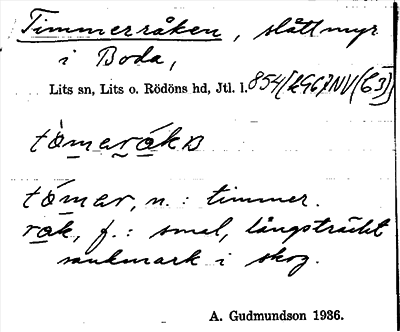 Timmerråken, slåttmyr
i Boda,
Lits sn, Lits o. Rödöns hd, Jtl. l. 854
tòmarákn
tómar, n. : timmer.
rak, f. : smal, långsträckt
sankmark i skog.
A. Gudmundson 1936.